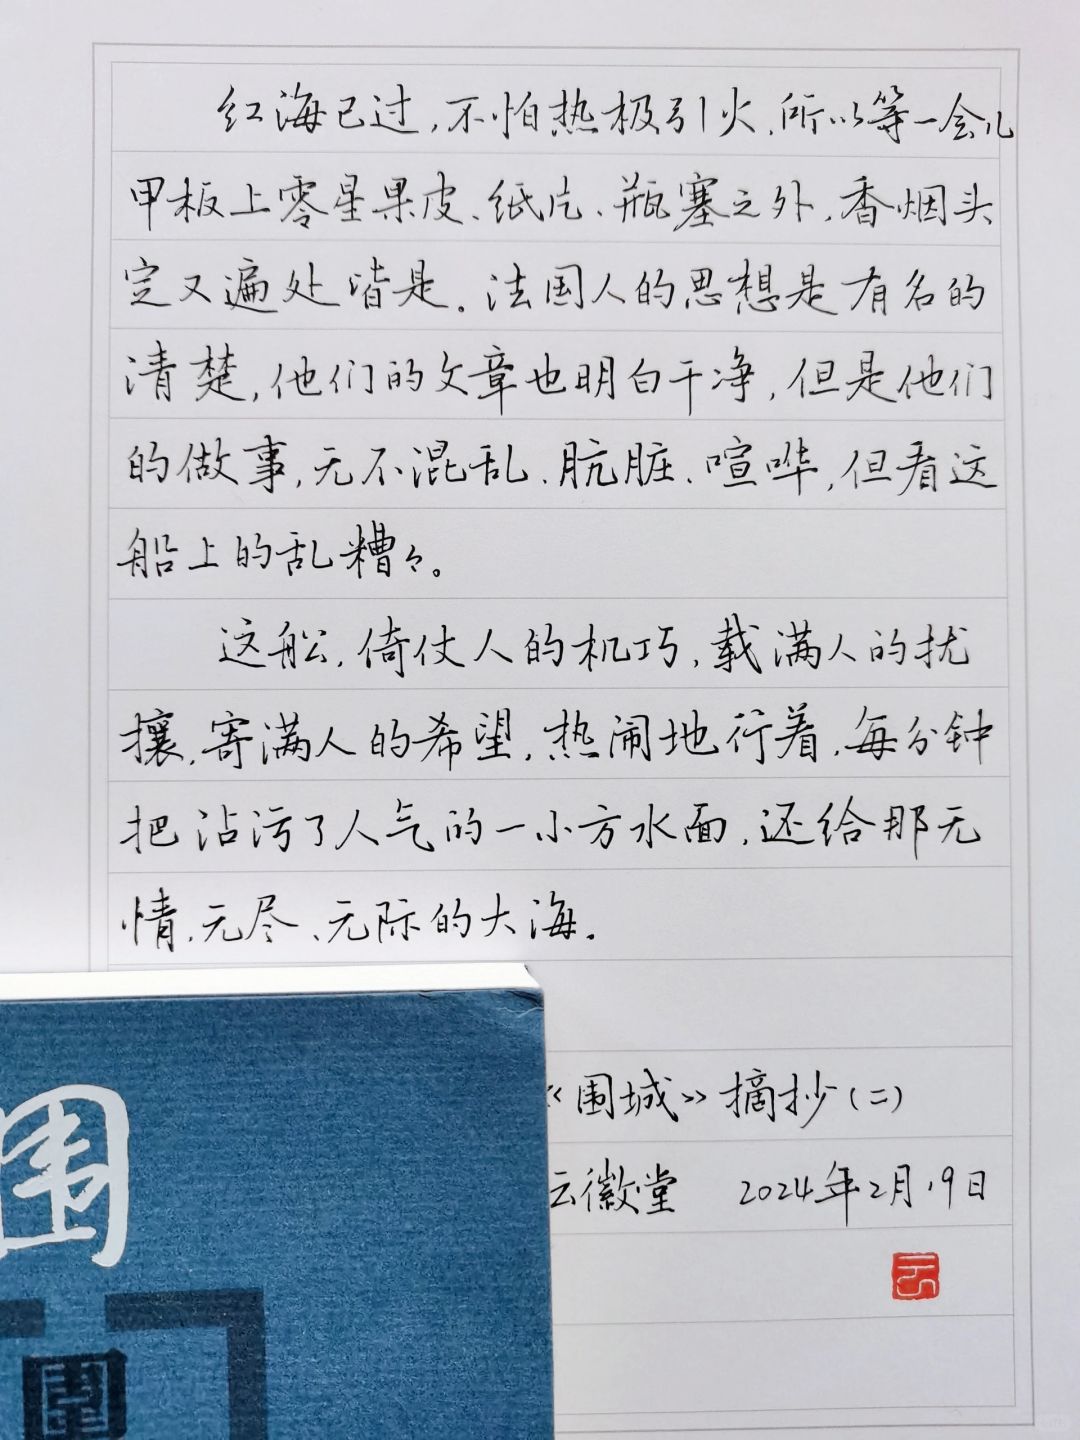 红海已过，不怕热极引火，所以等一会儿
甲板上零星果皮、纸片、瓶塞之外，香烟头
定又遍处皆是。法国人的思想是有名的
清楚，他们的文章也明白干净，但是他们
的做事，无不混乱、肮脏、喧哗，但看这
船上的乱糟々。
这船，倚仗人的机巧，载满人的扰
攘，寄满人的希望，热闹地行着，每分钟
把沾污了人气的一小方水面，还给那无
情、无尽、无际的大海。
《围城》摘抄（二）
云徽堂 2024年2月19日
云
围